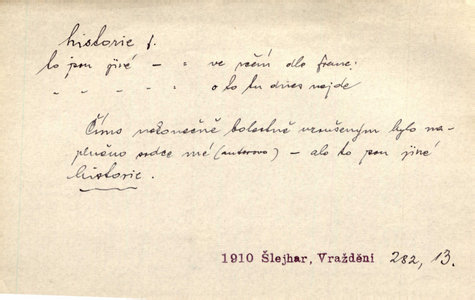 historie f.
to jsou jiné – " ve rčení dle franc.
" " " " " o to tu dnes nejde
Číms nekonečně bolestně vzrušeným bylo na-
plněno srdce mé (autorovo) – ale to jsou jiné
historie.
1910 Šlejhar, Vraždění 282, 13.